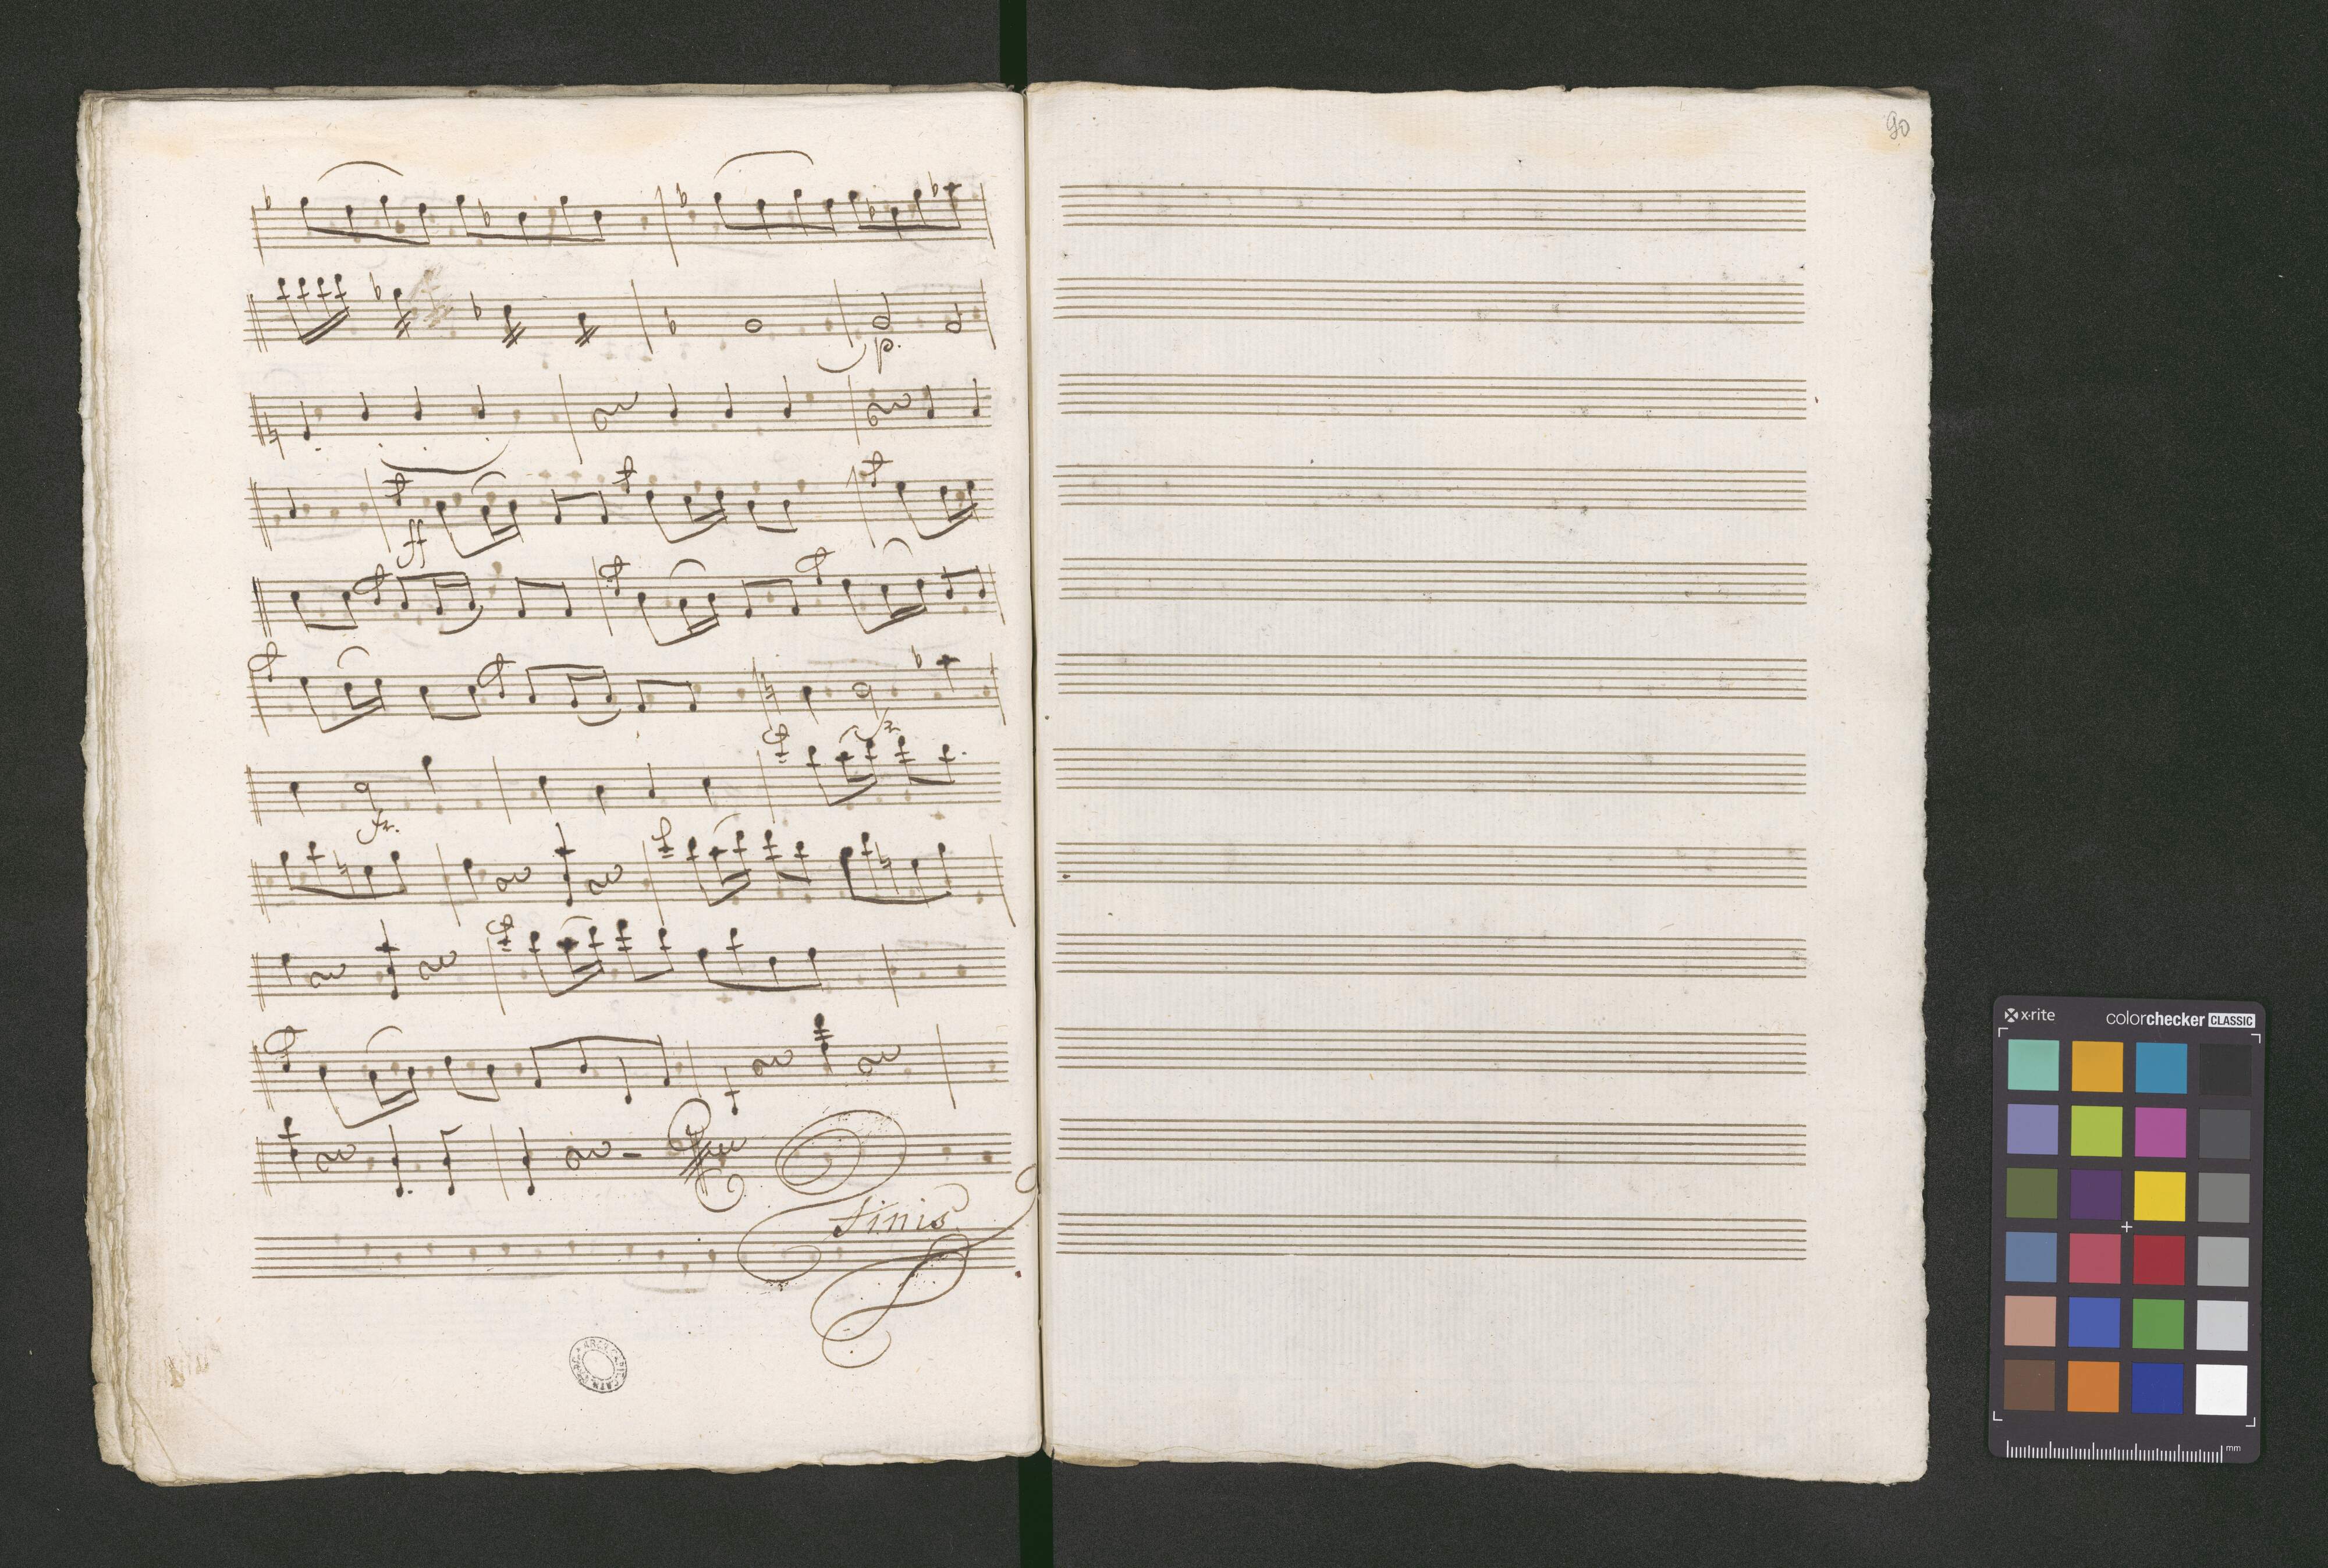 90
p.
ff
fz.
fz.
Finis
x-rite
colorchecker CLASSIC
mm